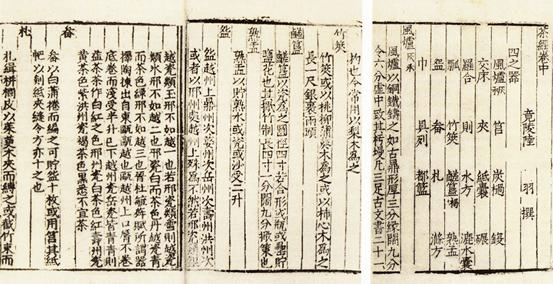 茶經卷中
竟陵陸 羽 撰
四之器
風爐灰承 筥 炭檛 鍑
交床 夾 紙囊 碾
羅合 則 水方 漉水囊
瓢 竹筴 鹺簋揭 熟盂
盌 畚 札 滌方
具列 都籃
風爐灰承
風爐以銅鐵鑄之如古鼎形厚三分緣闊九分
令六分虛中致其杇墁凡三足古文書二十一
均也今常用以梨木為之
竹筴
竹筴或以桃柳蒲葵木為之或以柿心木為之
長一尺銀裹兩頭
鹺簋
鹺簋以瓷為之圓徑四寸若合形或瓶或罍貯
鹽花也其揭竹制長四寸一分闊九分揭策也
熟盂
熟盂以貯熟水或瓷或沙受二升
盌
盌越州上鼎州次婺州次岳州次壽州洪州次
或者以邢州處越州上殊為不然若邢瓷類銀
越瓷類玉邢不如越一也若邢瓷類雪則越瓷
類冰邢不如越二也邢瓷白而茶色丹越瓷青
而茶色綠邢不如越三也晉杜毓荈賦所謂器
擇陶揀出自東甌甌越也甌越州上口唇不卷
底卷而淺受半升已下越州瓷岳瓷皆青青則
益茶茶作白紅之色邢州瓷白茶色紅壽州瓷
黃茶色紫洪州瓷褐茶色黑悉不宜茶
畚
畚以白蒲捲而編之可貯盌十枚或用筥其紙
帊以剡紙夾縫令方亦十之也
札
札緝栟櫚皮以茱萸木夾而縛之或截竹束而